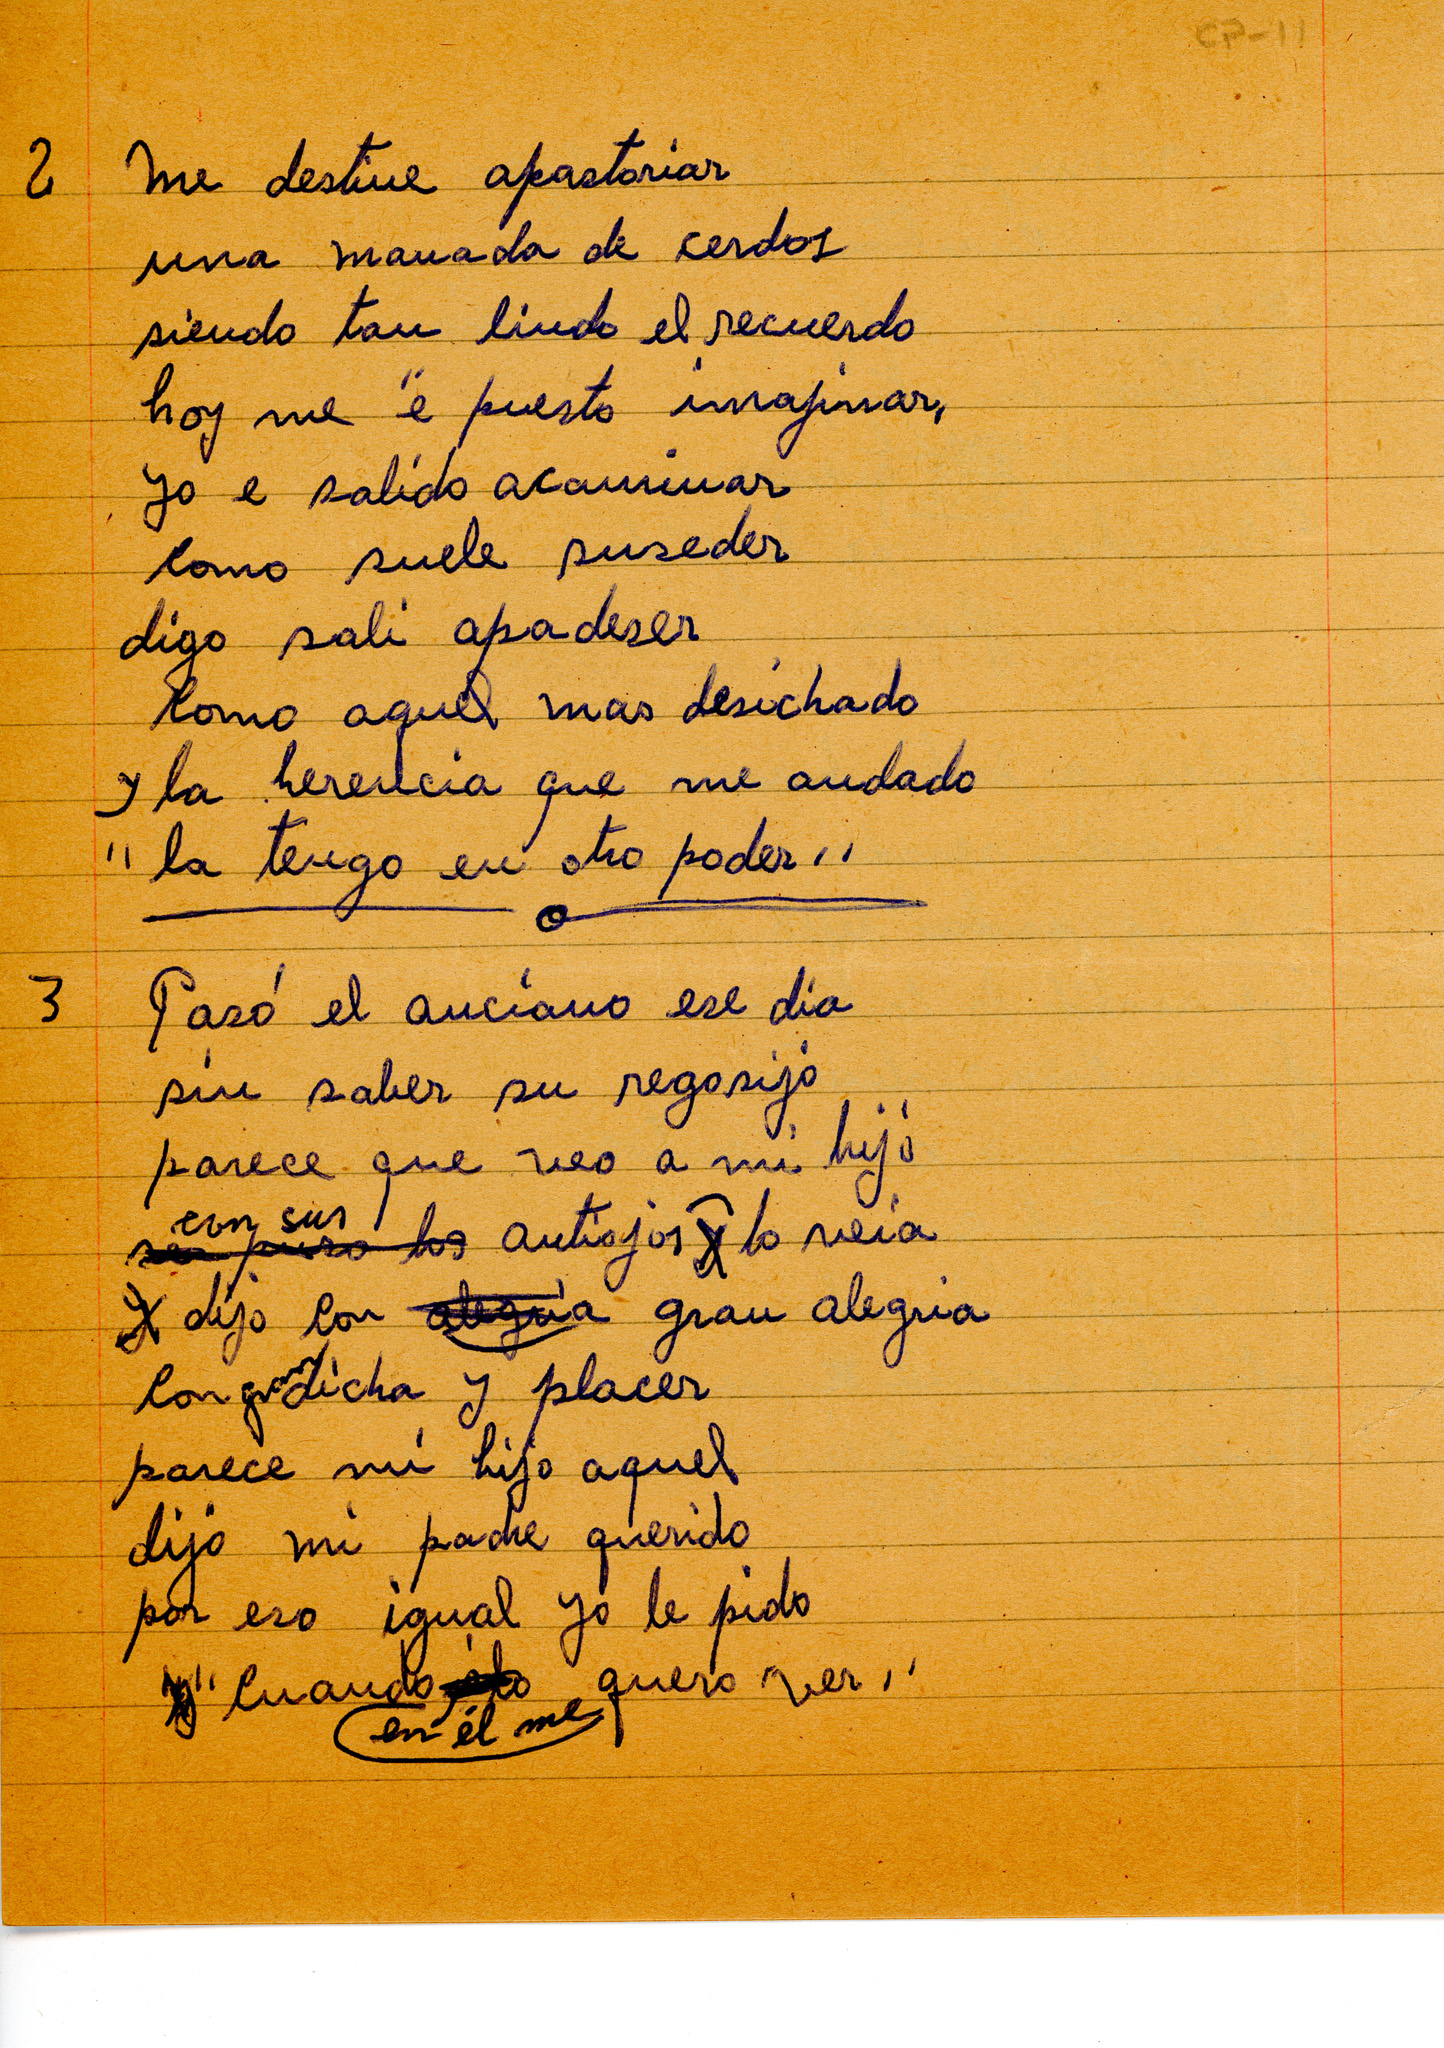 CP-11
2 Me destine apastoriar
una manada de cerdos
siendo tan lindo el recuerdo
hoy me "e puesto imajinar,
yo e salido acaminar
como suele suseder
digo sali apadeser
como aquel mas desichado
y la herencia que me andado
"la tengo en otro poder,,
3 Pasó el anciano ese dia
sin saber su regosijo
parece que veo a mi hijo
con sus
se puso los antiojos y lo veia
y dijo con alegria gran alegria
con gran dicha y placer
parece mi hijo aquel
dijo mi padre querido
por eso igual yo le pido
y "cuando quero ver,,
en él me